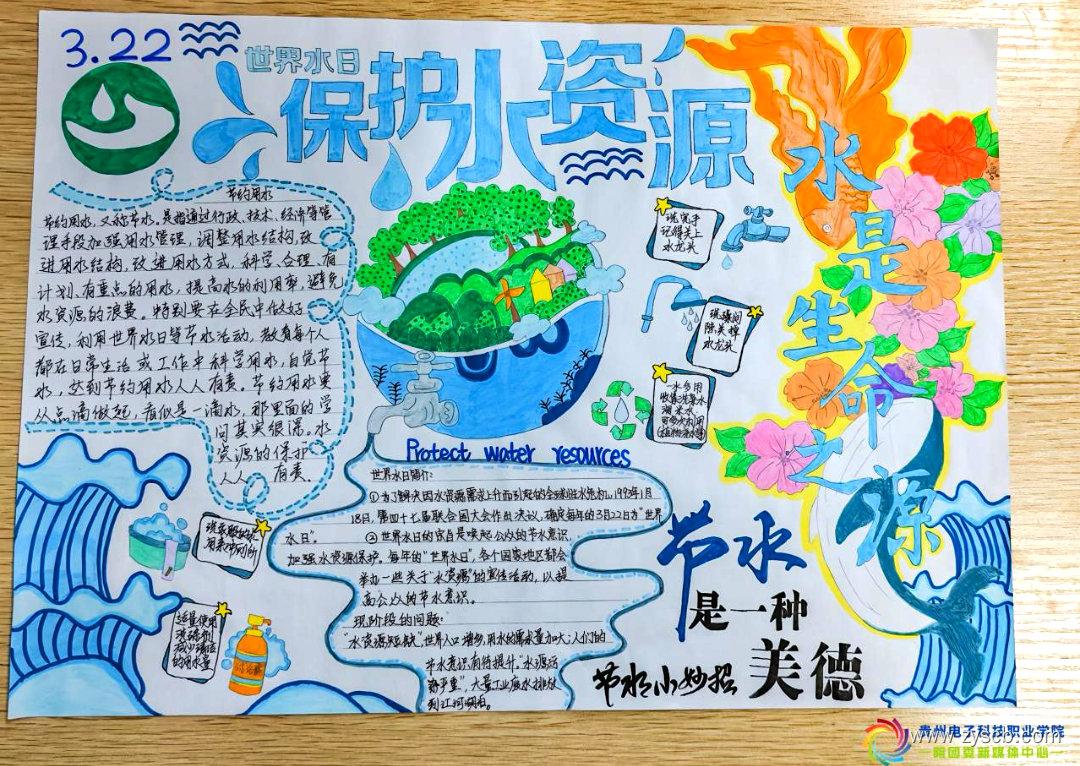 3.22
世界水日
保护水资源
节约用水
节约用水，又称节水。是指通过行政、技术、经济等管
理手段加强用水管理，调整用水结构，改
进用水结构，改进用水方式，科学、合理、有
计划、有重点的用水，提高水的利用率，避免
水资源的浪费。特别要在全民中做好
宣传，利用世界水日等节水活动，教育每个人
都在日常生活或工作中科学用水，自觉节
水，达到节约用水人人有责。节约用水要
从点滴做起，看似是一滴水，那里面的学
问其实很深。水
资源的保护
人人有责。
洗完手
记得关上
水龙头
洗澡间
隙关掉
水龙头
一水多用
水是生命之源
Protect water resources
世界水日简介：
①为了解决因水资源需求上升而引起的全球性水危机，1993年1月
18日，第四十七届联合国大会作出决议，确定每年的3月22日为“世界
水日”。
②世界水日的宗旨是唤起公众的节水意识
加强水资源保护。每年的“世界水日”，各个国家地区都会
举办一些关于“水资源”的宣传活动，以提
高公众的节水意识。
现阶段的问题：
“水资源短缺”世界人口增多，用水的需求量加大；人们的
节水意识有待提升。“水源污
染严重”，大量工业废水排放
到江河湖泊。
适量使用
洗涤剂
减少清洁
的用水量
节水
是一种
美德
节水小妙招
贵州电子科技职业学院
www.zyscb.com
校园委新媒体中心